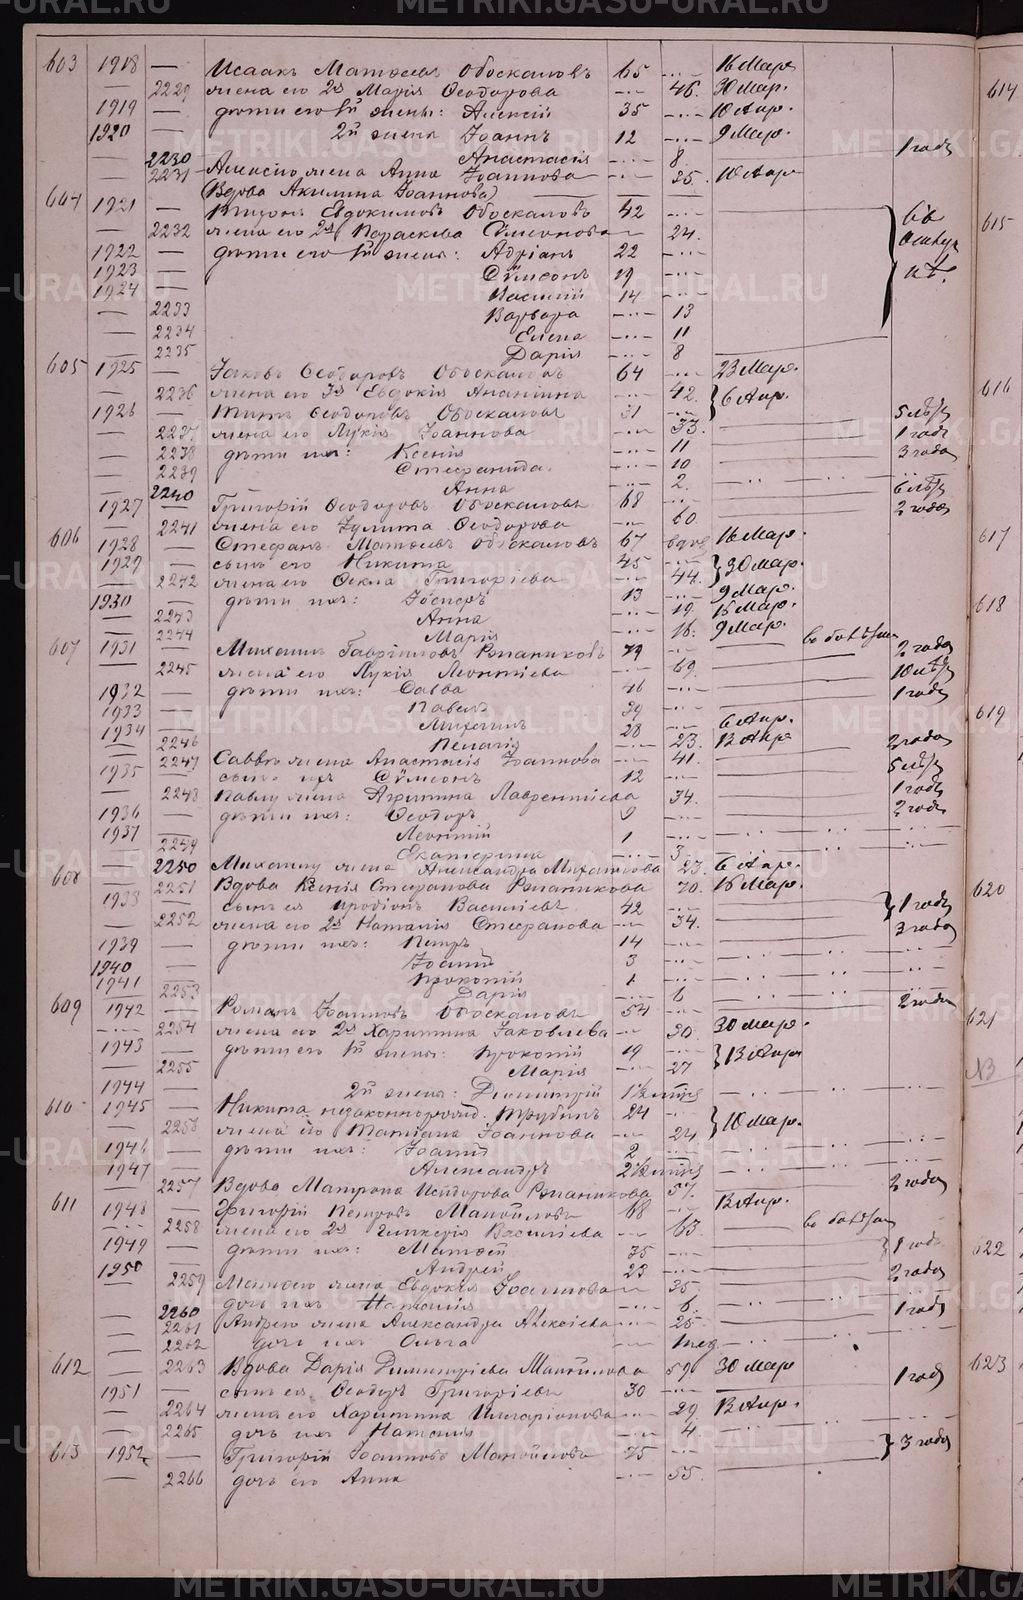 603 1918 — Исаакъ Матѳеевъ Обоскаловъ 65 —··— 16 Мар.
— 2229 жена его 2я Марія Ѳеодорова —··— 46. 30 Мар.
1919 — дѣти его 1й жены: Алексій 35 —··— 10 Апр.
1920 — 2й жены Іоаннъ 12 —··— 9 Мар.
— 2230 Анастасія —··— 8 1 годъ
— 2231 Алексію жена Анна Іоаннова —··— 35. 10 Апр.
604 (Вдова Акилина Іоаннова)
1921 — Евдокимовъ Обоскаловъ 42 —··—
— 2232 жена его 2я Параскева Сумеонова —··— 24.
1922 — дѣти его 1й жены: Адріанъ 22 —··—
1923 — Сумеонъ 19 —··—
1924 — Василій 14 —··—
— 2233 Варвара —··— 13
— 2234 Елена —··— 11
— 2235 Дарія —··— 8
605 1925 — Іаковъ Ѳеодоровъ Обоскаловъ 64 —··— 23 Мар.
— 2236 жена его 3я Евдокія Ананіина —··— 42. 6 Апр.
1926 — Титъ Ѳеодоровъ Обоскаловъ 31 —··—
— 2237 жена его Лукія Іоаннова —··— 33. 1 годъ
— 2238 дѣти ихъ: Ксенія —··— 11 3 года
— 2239 Стефанида —··— 10
— 2240 Анна —··— 2.
1927 — Григорій Ѳеодоровъ Обоскаловъ 68 —··— 2 года
— 2241 жена его Іулита Ѳеодорова —··— 60
606 1928 — Стефанъ Матѳеевъ Обоскаловъ 67 вдов. 16 Мар.
1929 — сынъ его Никита 45 —··— 30 Мар.
— 2242 жена его Ѳекла Григоріева —··— 44.
1930 — дѣти ихъ: 13 —··— 9 Мар.
— 2243 Анна —··— 19 15 Мар.
— 2244 Марія —··— 16. 9 Мар.
607 1931 — Михаилъ Гавріиловъ 79 —··— 2 года
— 2245 жена его Лукія Леонтіева —··— 69.
1932 — дѣти ихъ: Савва 46 —··— 1 годъ
1933 — Павелъ 39 —··—
1934 — Михаилъ 28 —··— 6 Апр.
— 2246 Пелагія —··— 23. 12 Апр.
— 2247 Саввѣ жена Анастасія Іоаннова —··— 41.
1935 — сынъ ихъ Сумеонъ 12 —··—
— 2248 Павлу жена Агрипина Лаврентіева 34. 1 годъ
1936 — дѣти ихъ: Ѳеодоръ 9
1937 — Леонтій 1 —··—
— 2249 Екатерина —··— 3
608 — 2250 Михаилу жена Александра Михаилова 23. 6 Апр.
— 2251 Вдова Ксенія Стефанова 70. 16 Мар.
1938 — сынъ ея Иродіонъ Василіевъ 42 —··— 1 годъ
— 2252 жена его 2я Наталія Стефанова —··— 34. 3 года
1939 — дѣти ихъ: Петръ 14 —··—
1940 — 3 —··—
1941 — Прокопій 1 —··—
— 2253 Дарія —··— 6
609 1942 — Романъ Іоанновъ Обоскаловъ 54 —··— 2 года
—··— 2254 жена его 2я Харитина Іаковлева —··— 30. 30 Мар.
1943 — дѣти его 1й жены: Прокопій 19 —··— 13 Апр.
— 2255 Марія —··— 27
1944 — 2й жены: Димитрій
610 1945 — Никита незаконнорожд. Трубинъ 24 —··— 10 Мар.
— 2256 жена его Татіана Іоаннова —··— 24
1946 — дѣти ихъ: 2 —··—
1947 — Александръ
— 2257 Вдова Матрона Исидорова 57. 2 года
611 1948 — Григорій Петровъ Манойловъ 68 —··— 12 Апр.
—··— 2258 жена его 2я Гликерія Василіева —··— 63.
1949 — дѣти ихъ: Матѳей 35 —··— 1 годъ
1950 — Андрей 23 —··— 2 года
— 2259 Матѳею жена Евдокія Іоаннова —··— 35.
— 2260 дочь ихъ Наталія —··— 6. 1 годъ
— 2261 Андрею жена Александра Алексіева —··— 25
— 2262 дочь ихъ Ольга —··— 1 нед.
612 — 2263 Вдова Дарія Димитріева Манойлова 59 30 Мар
1951 — сынъ ея Ѳеодоръ Григоріевъ 30 —··— 1 годъ
— 2264 жена его Харитина Иларіонова —··— 29. 12 Апр.
— 2265 дочь ихъ Наталія —··— 4
613 1952 — Григорій Іоанновъ Манойловъ 75 —··— 3 года
— 2266 дочь его Анна —··— 55.
614
615
616
617
618
619
620
621
622
623
METRIKI.GASO-URAL.RU